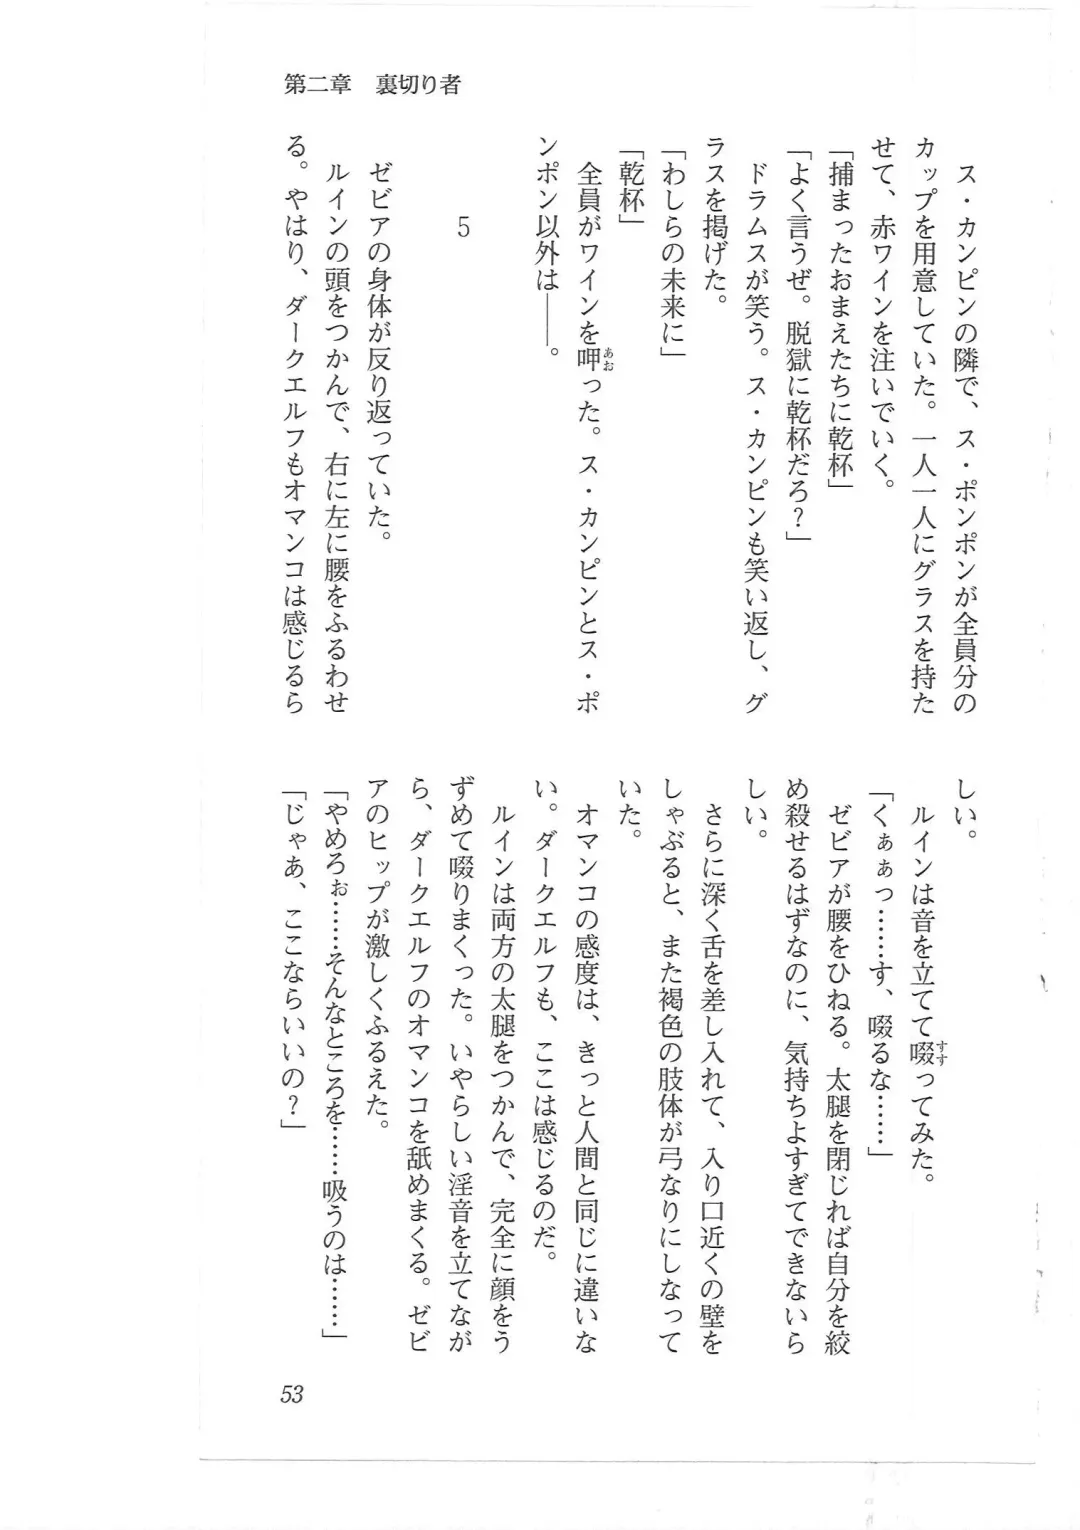 第二章　裏切り者
ス・カンピンの隣で、ス・ポンポンが全員分の
カップを用意していた。一人一人にグラスを持た
せて、赤ワインを注いでいく。
「捕まったおまえたちに乾杯」
「よく言うぜ。脱獄に乾杯だろ？」
ドラムスが笑う。ス・カンピンも笑い返し、グ
ラスを掲げた。
「わしらの未来に」
「乾杯」
全員がワインを呷った。ス・カンピンとス・ポ
あお
ンポン以外は――。
5
ゼビアの身体が反り返っていた。
ルインの頭をつかんで、右に左に腰をふるわせ
る。やはり、ダークエルフもオマンコは感じるら
しい。
ルインは音を立てて啜ってみた。
すす
「くぁぁっ……す、啜るな……」
ゼビアが腰をひねる。太腿を閉じれば自分を絞
め殺せるはずなのに、気持ちよすぎてできないら
しい。
さらに深く舌を差し入れて、入り口近くの壁を
しゃぶると、また褐色の肢体が弓なりにしなって
いた。
オマンコの感度は、きっと人間と同じに違いな
い。ダークエルフも、ここは感じるのだ。
ルインは両方の太腿をつかんで、完全に顔をう
ずめて啜りまくった。いやらしい淫音を立てなが
ら、ダークエルフのオマンコを舐めまくる。ゼビ
アのヒップが激しくふるえた。
「やめろぉ……そんなところを……吸うのは……」
「じゃあ、ここならいいの？」
53